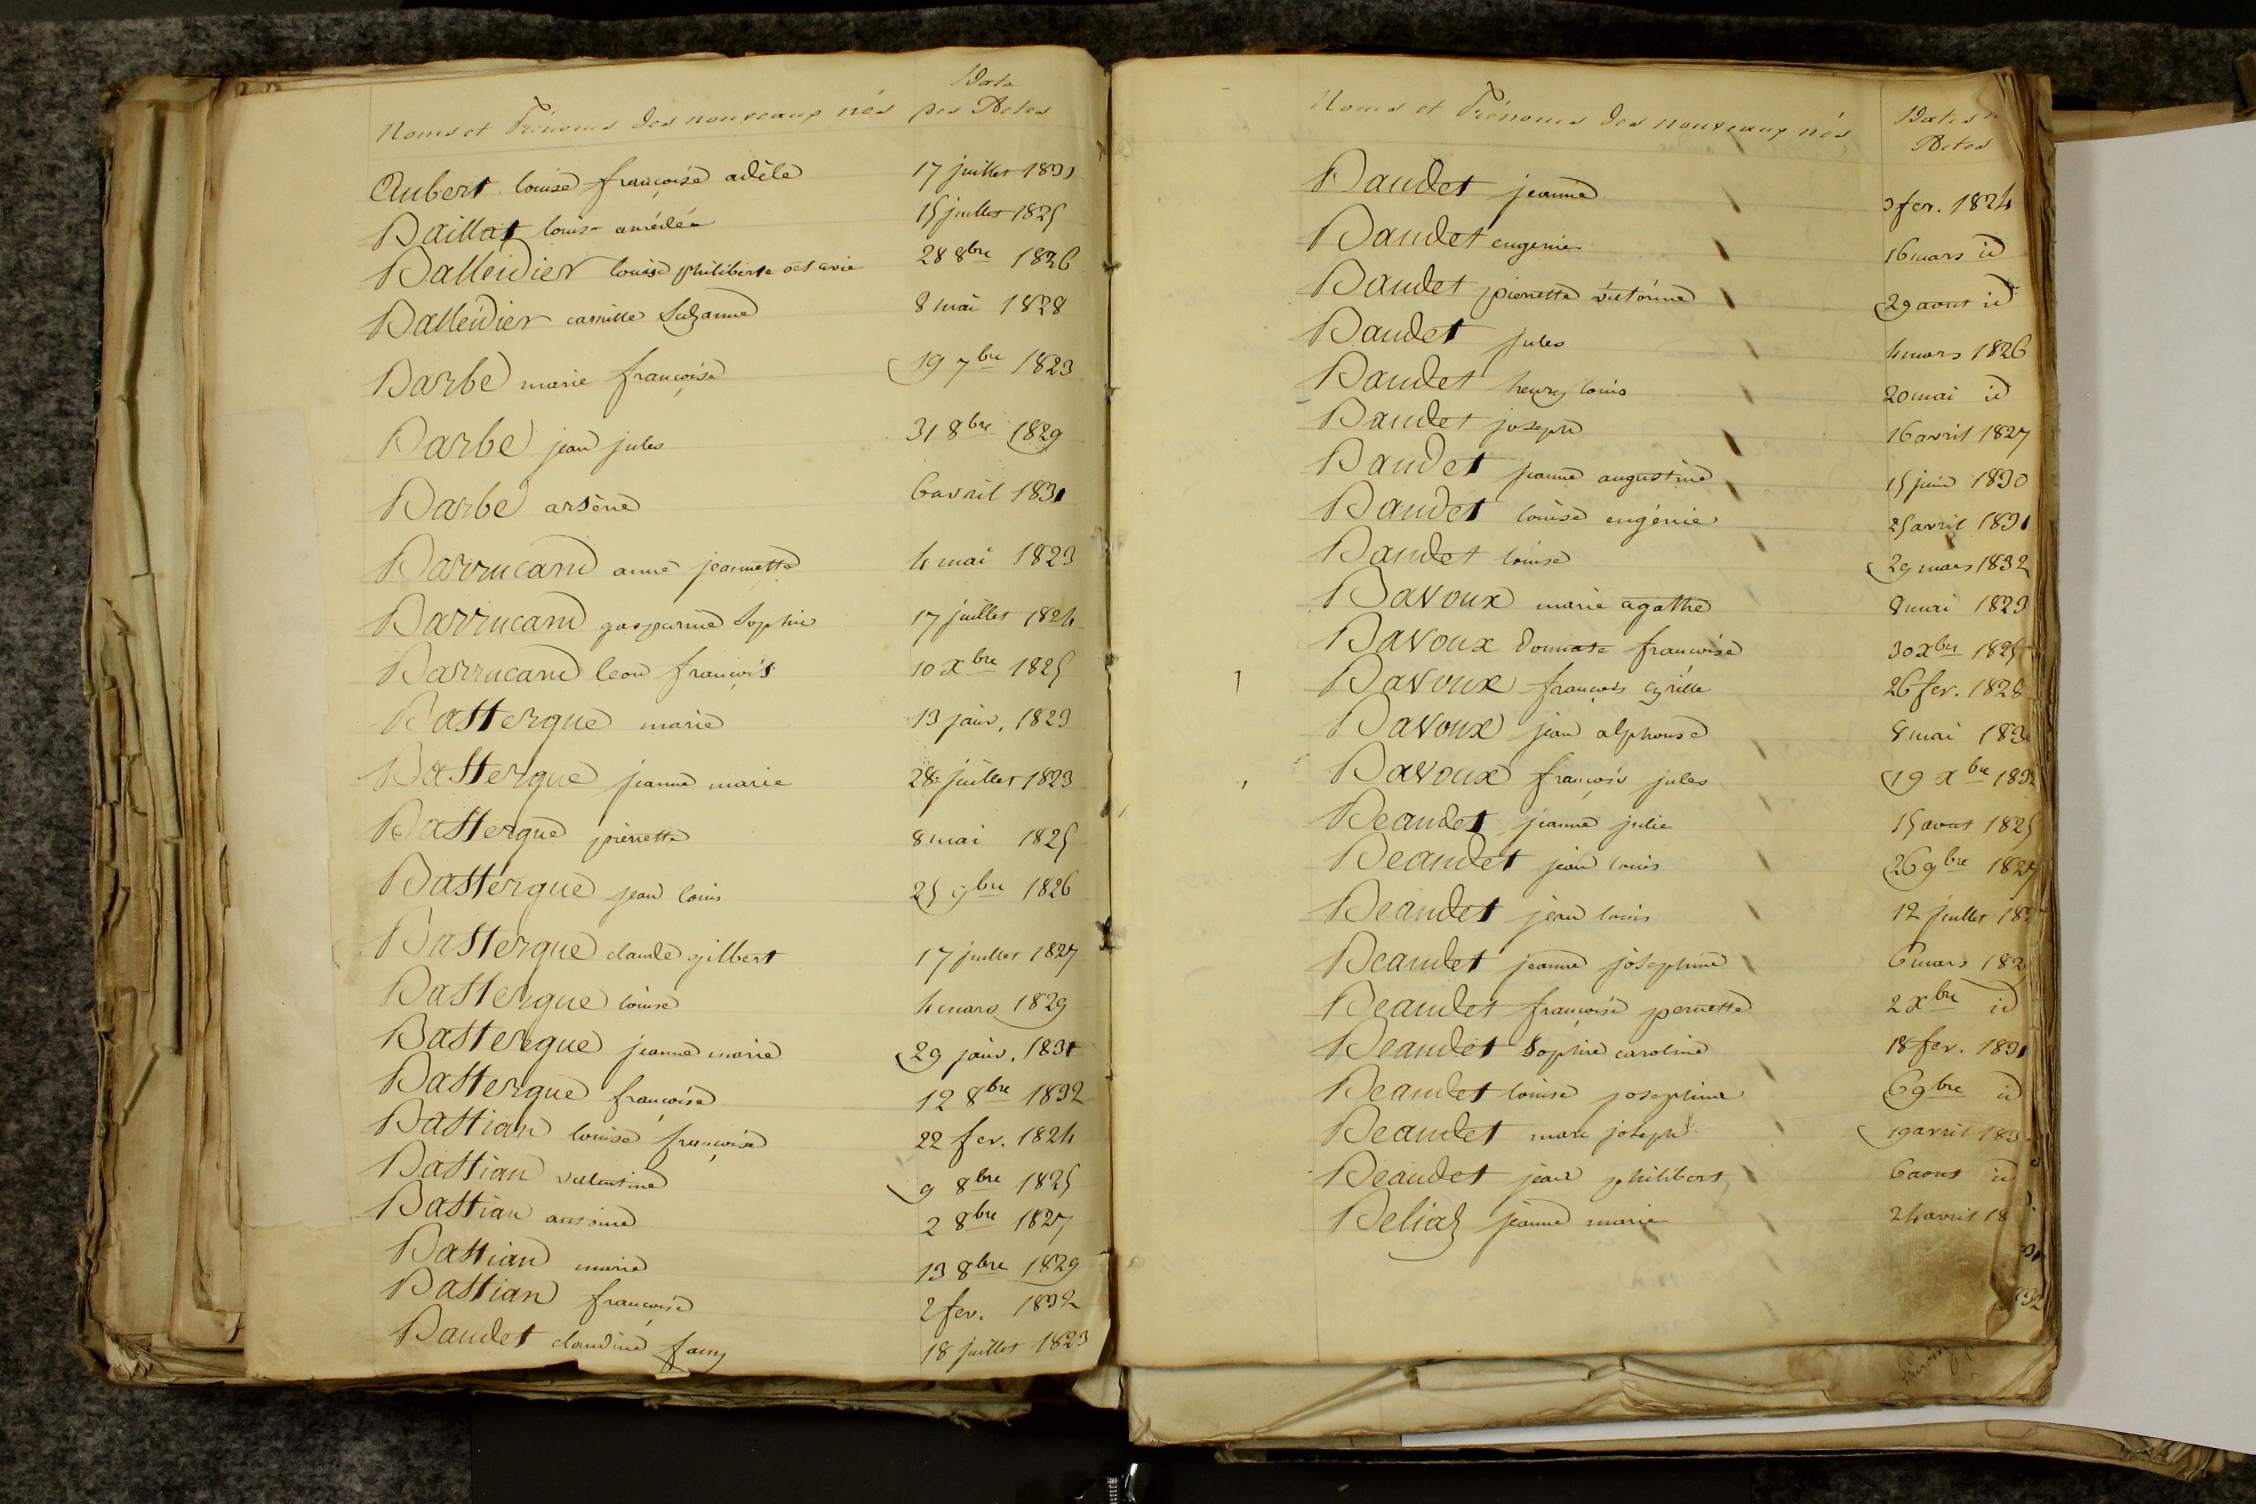 Noms et Prénoms des nouveaux nés
Date
des Actes
Aubert louise françoise adèle 17 juillet 1831
Baillat louis amédée 15 juillet 1825
Balleidier louise philiberte octavie 28 8bre 1826
Balleidier camille Suzanne 8 mai 1828
Barbe marie françoise 19 7bre 1823
Barbe jean jules 31 8bre 1829
Barbe arsène 6 avril 1831
Barrucand anne jeannette 4 mai 1823
Barrucand gasparine Sophie 17 juillet 1824
Barrucand leon françois 10 Xbre 1825
Bastergue marie 13 janv. 1823
Bastergue jeanne marie 28 juillet 1823
Bastergue pierrette 8 mai 1825
Bastergue jean louis 25 9bre 1826
Bastergue claude gilbert 17 juillet 1827
Bastergue louise 4 mars 1829
Bastergue jeanne marie 29 janv. 1831
Bastergue françoise 12 8bre 1832
Bastian louise françoise 22 fev. 1824
Bastian valentine 9 8bre 1825
Bastian antoine 2 8bre 1827
Bastian marie 13 8bre 1829
Bastian françoise 2 fev. 1832
Baudet claudine fany 18 juillet 1823
Noms et Prénoms des nouveaux nés
Dates
Actes
Baudet jeanne 3 fev. 1824
Baudet eugenie 16 mars id
Baudet pierrette victorine 29 aout id
Baudet jules 4 mars 1826
Baudet henry louis 20 mai id
Baudet joseph 16 avril 1827
Baudet jeanne augustine 15 juin 1830
Baudet louise eugénie 25 avril 1831
Baudet louise 29 mars 1832
Bavoux marie agathe 8 mai 1823
Bavoux donnate françoise 30 Xbre 1825
Bavoux françois cyrille 26 fev. 1828
Bavoux jean alphonse 8 mai 183
Bavoux françois jules 19 Xbre 1832
Beaudet jeanne julie 15 aout 1825
Beaudet jean louis 26 9bre 1827
Beaudet jean louis 12 juillet 182
Beaudet jeanne josephine 6 mars 182
Beaudet françoise pernette 2 Xbre id
Beaudet Sophie caroline 18 fev. 1831
Beaudet louise josephine 6 9bre id
Beaudet marc joseph 19 avril 183
Beaudet jean philibert 6 aout id
Beliaz jeanne marie 24 avril 18